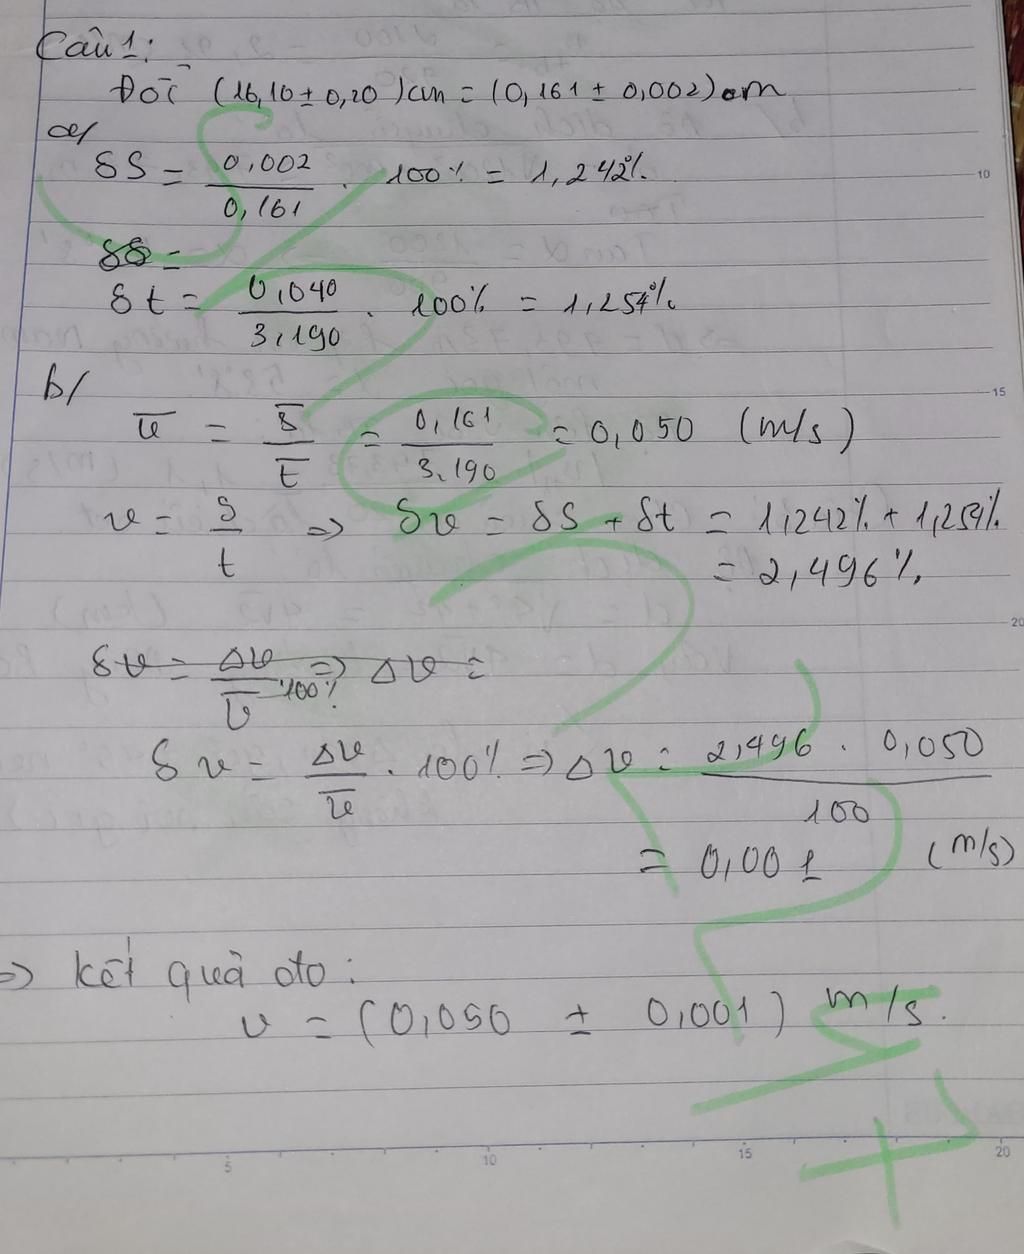 Câu 1:
Đổi (16,10 ± 0,20) cm = (0,161 ± 0,002) m
a/
δS = 0,002 / 0,161 . 100% = 1,242%
δS =
δt = 0,040 / 3,190 . 100% = 1,254%
b/
v̄ = s̄ / t̄ = 0,161 / 3,190 = 0,050 (m/s)
v = s / t => δv = δS + δt = 1,242% + 1,254%
= 2,496%
δv = Δv / v̄ .100% => Δv =
δv = Δv / v̄ . 100% => Δv = 2,496 . 0,050 / 100
= 0,001 (m/s)
=> Kết quả đo:
v = (0,050 ± 0,001) m/s.
10
15
20
5
10
15
20